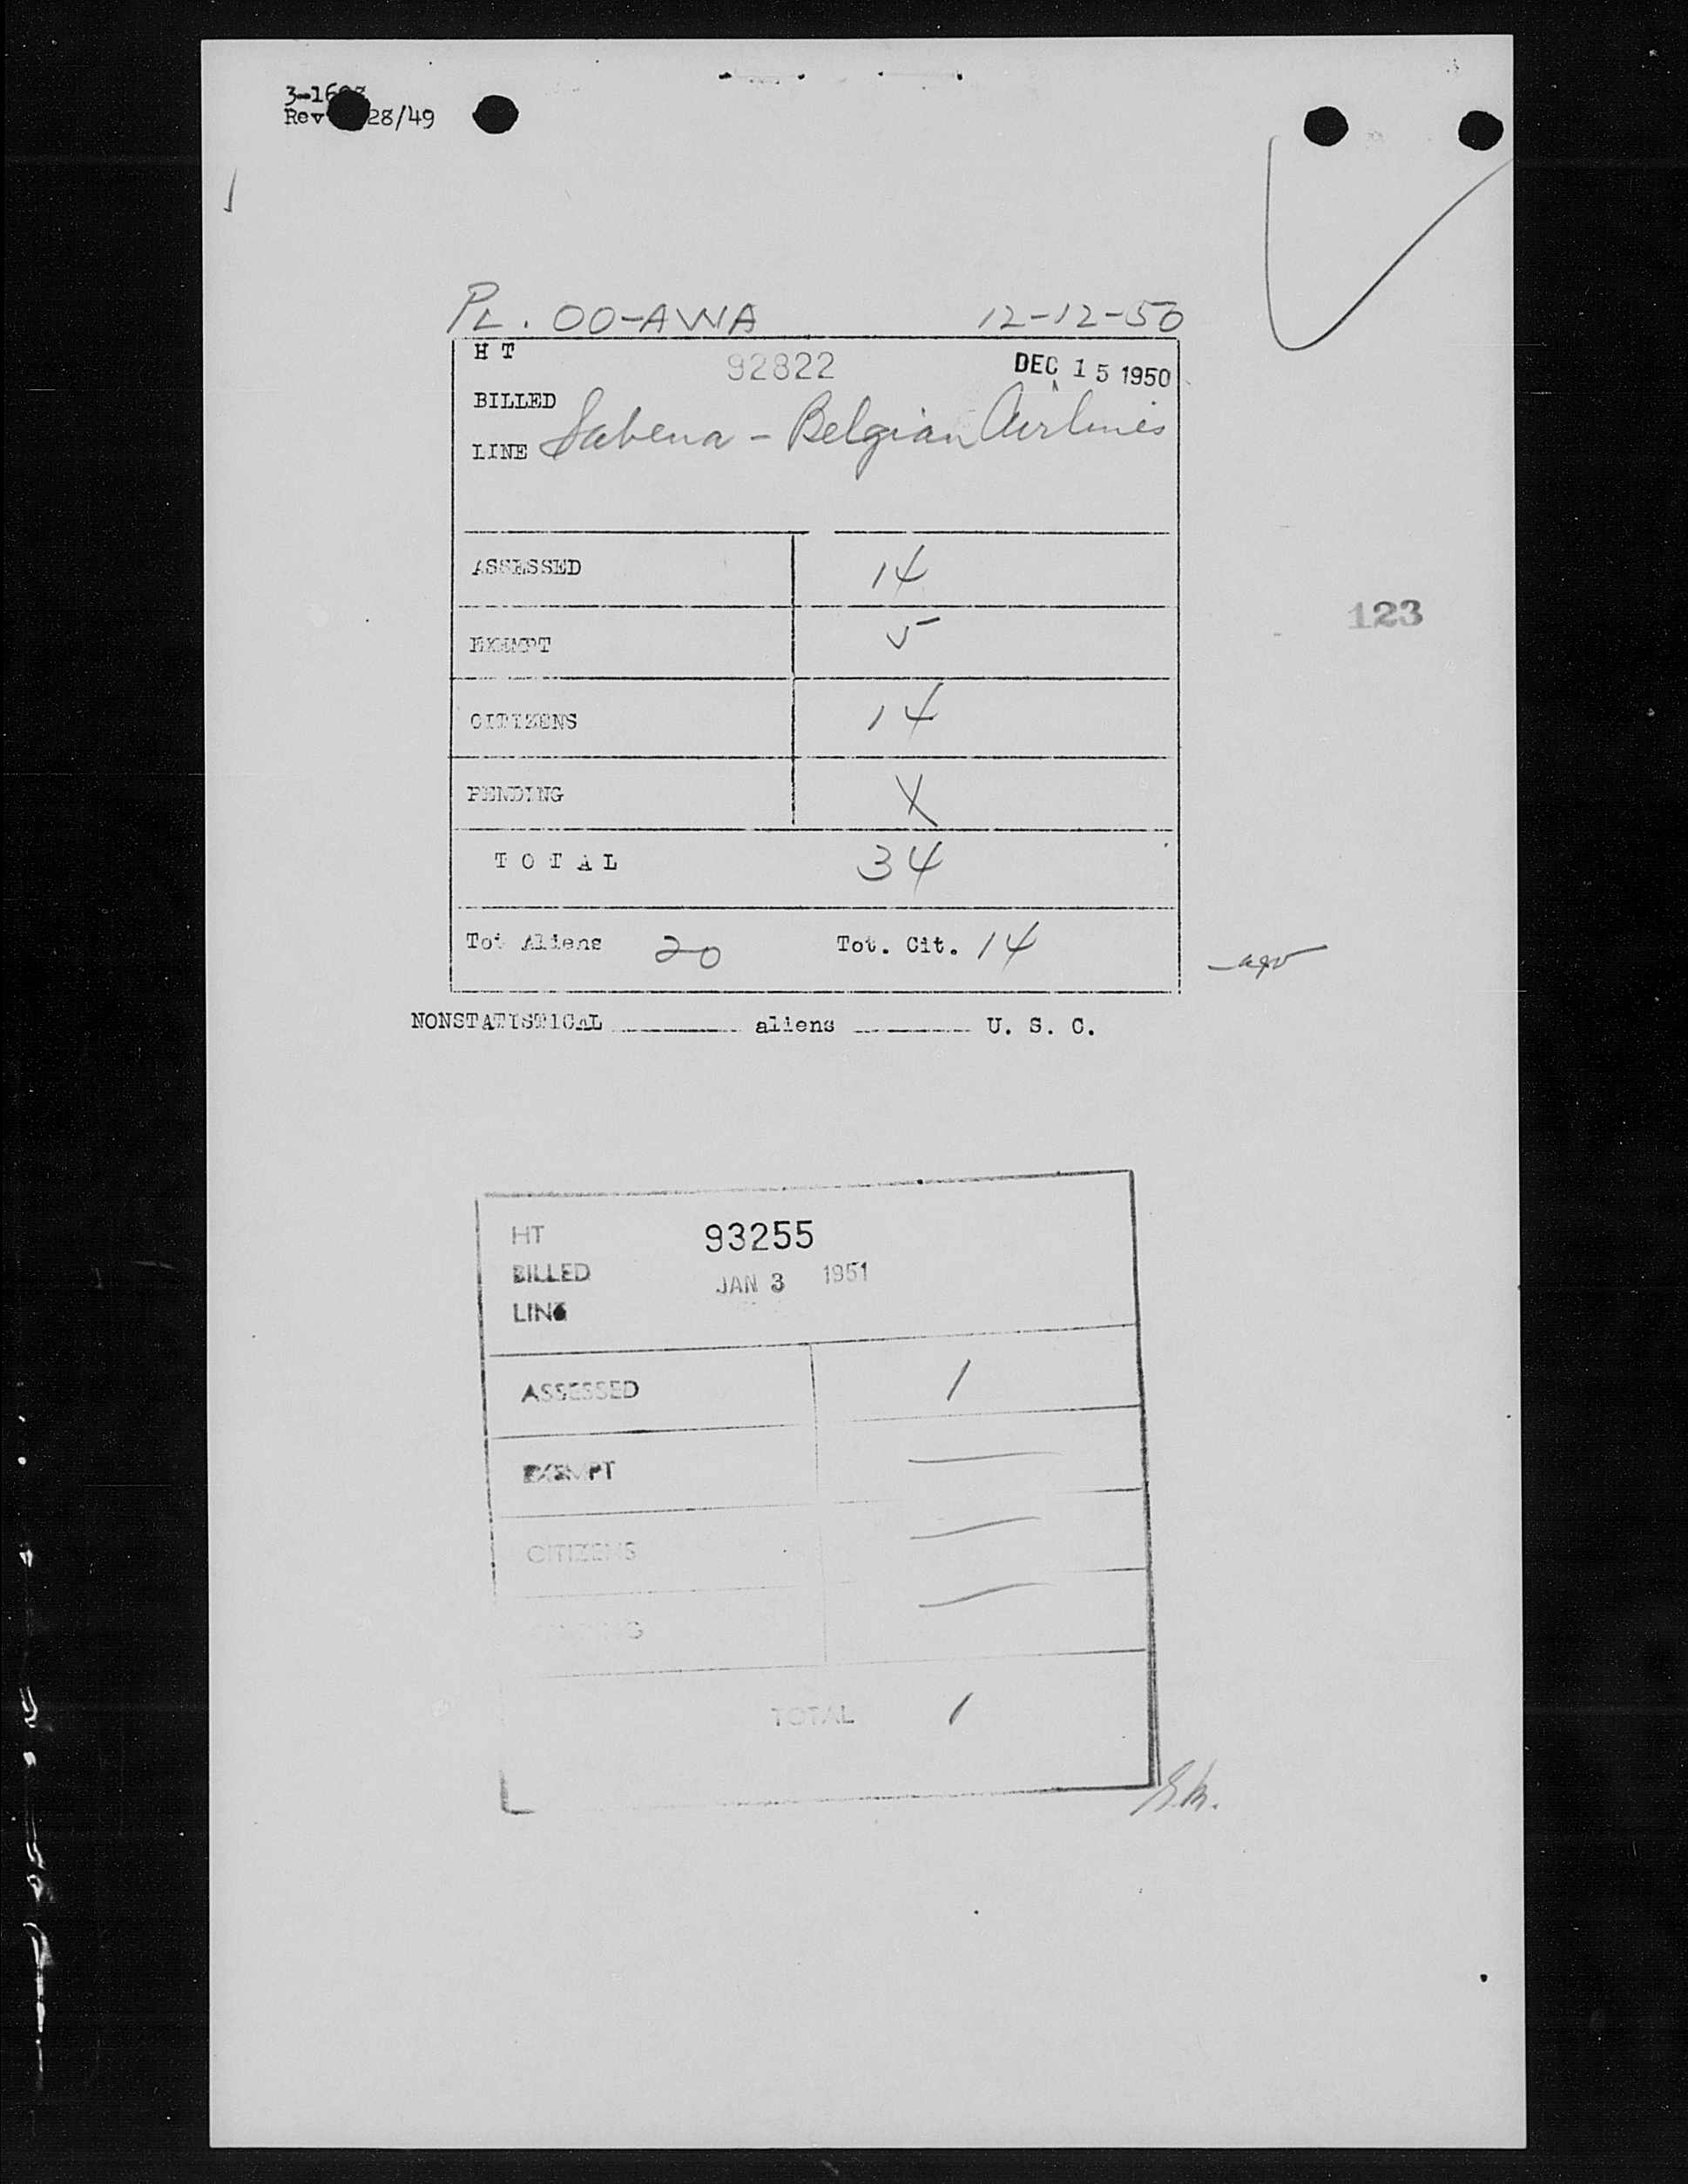 Rev 28/49
PL. OO-AWA 12-12-50
H T 92822 DEC 15 1950
BILLED
LINE Sabena - Belgian Airlines
ASSESSED 14
EXEMPT 5
CITIZENS 14
PENDING X
TOTAL 34
Tot Aliens 20 Tot. Cit. 14
NONSTATISTICAL aliens U. S. C.
123
HT 93255
BILLED JAN 3 1951
LINE
ASSESSED 1
EXEMPT —
CITIZENS —
—
TOTAL 1